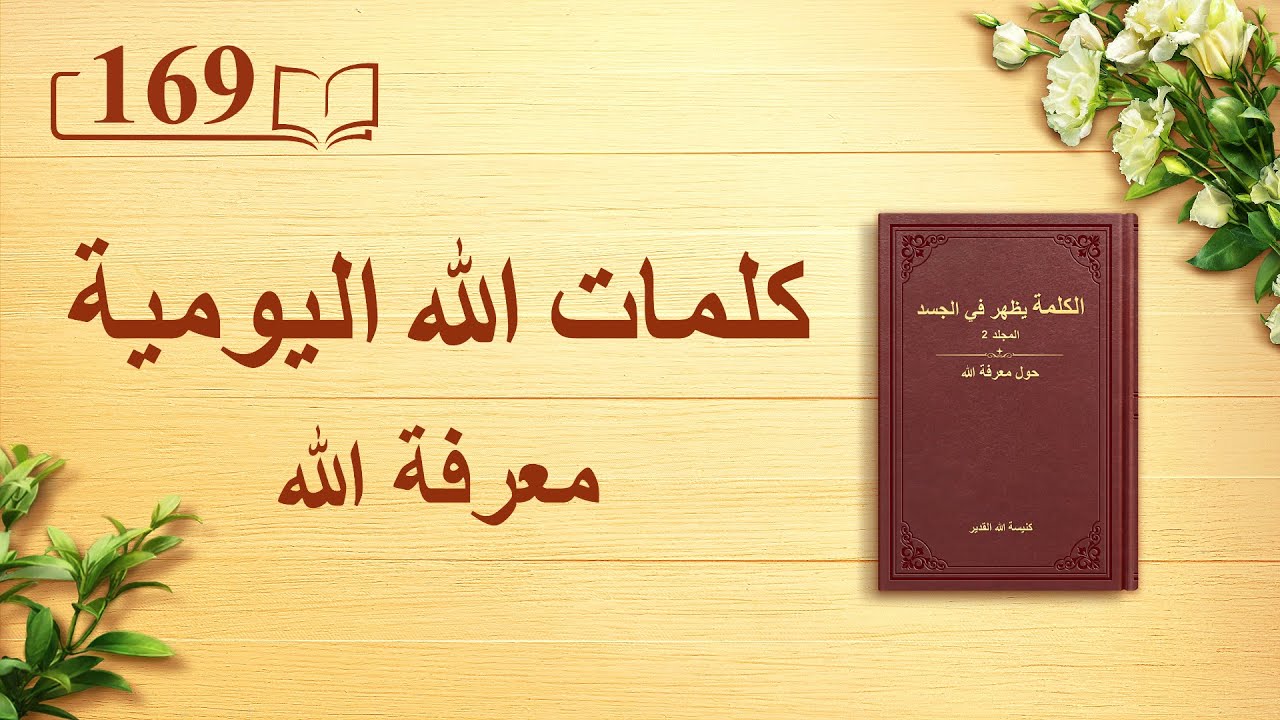 169
كلمات الله اليومية
معرفة الله
الكلمة يظهر في الجسد
المجلد 2
حول معرفة الله
كنيسة الله القدير